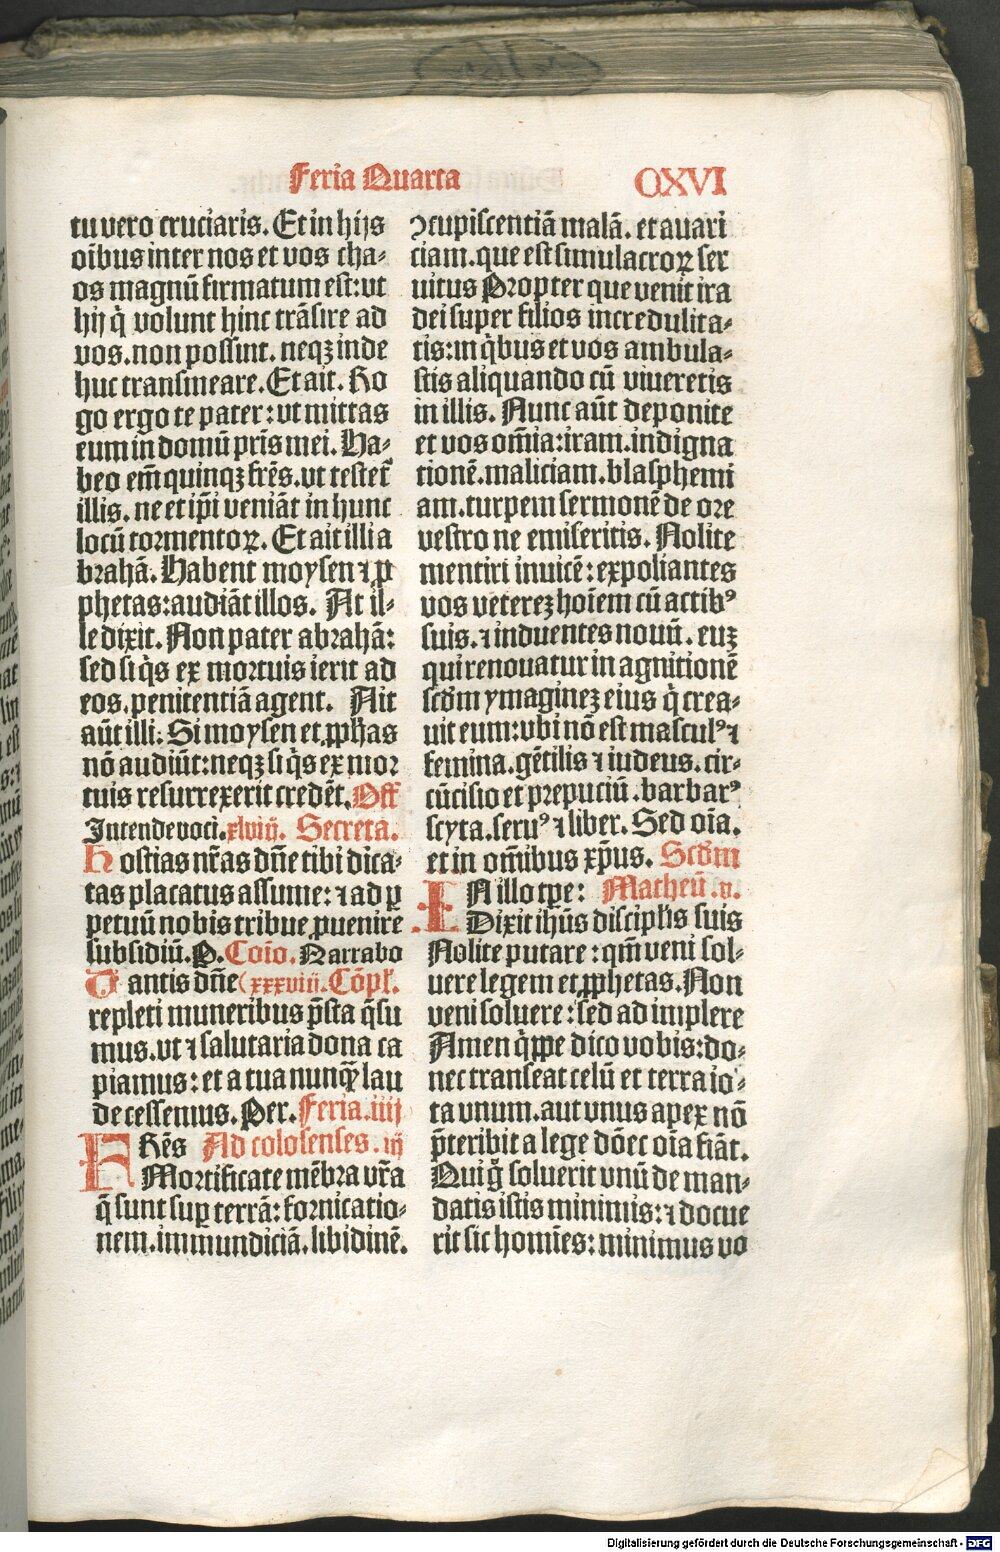 Feria Quarta
CXVI
tu vero cruciaris. Et in hijs
oĩbus inter nos et vos cha⸗
os magnũ firmatum est: ut
hij q̇ volunt hinc trãsire ad
vos. non possint. neqꝫ inde
huc transmeare. Et ait. Ro
go ergo te pater: ut mittas
eum in domũ pr̃is mei. Ha⸗
beo em̃ quinqꝫ fr̃es. ut testet᷑
illis. ne et ip̃i veniãt in hunc
locũ tormentoꝝ. Et ait illi a
brahã. Habent moysen ⁊ ꝓ
phetas: audiãt illos. At il⸗
le dixit. Non pater abrahã:
sed si q̇s ex mortuis ierit ad
eos. penitentiã agent. Ait
aũt illi. Si moysen et ꝓph̃as
nõ audiũt: neqꝫ si q̇s ex mor
tuis resurrexerit credẽt. Off
Intende voci. xlviij. Secreta.
Hostias nr̃as dñe tibi dica⸗
tas placatus assume: ⁊ ad ꝑ
petuũ nobis tribue ꝓuenire
subsidiũ. P. Coĩo. Narrabo
Tantis dñe (xxxviij. Cõpl̃.
repleti muneribus p̃sta q̃su
mus. ut ⁊ salutaria dona ca
piamus: et a tua nunqꝫ̃ lau
de cessemus. Per. Feria. iiij
FRẽs Ad colosenses. iij
Mortificate mẽbra vr̃a
q̃ sunt suꝑ terrã: fornicatio⸗
nem. immundiciã. libidinẽ.
ꝯcupiscentiã malã. et auari
ciam. que est simulacroꝝ ser
uitus Propter que venit ira
dei super filios incredulita⸗
tis: in q̇bus et vos ambula⸗
stis aliquando cũ viueretis
in illis. Nunc aũt deponite
et vos om̃ia: iram. indigna
tionẽ. maliciam. blasphemi
am. turpem sermonẽ de ore
vestro ne emiseritis. Nolite
mentiri inuicẽ: expoliantes
vos vetereꝫ hoĩem cũ actibꝰ
suis. ⁊ induentes nouũ. euꝫ
qui renouatur in agnitionẽ
scd̃m ymagineꝫ eius q̇ crea⸗
uit eum: vbi nõ est masculꝰ ⁊
femina. gẽtilis ⁊ iudeus. cir⸗
cũcisio et prepuciũ. barbarꝰ
scyta. seruꝰ ⁊ liber. Sed oĩa.
et in om̃ibus xp̃us. Scd̃m
IN illo tꝑe: Matheũ. v.
Dixit ih̃us discipl̃is suis
Nolite putare: qm̃ veni sol⸗
uere legem et ꝓphetas. Non
veni soluere: sed ad implere
Amen q̇ppe dico vobis: do⸗
nec transeat celũ et terra io⸗
ta vnum. aut vnus apex nõ
p̃teribit a lege dõec oĩa fiãt.
Qui g̊ soluerit vnũ de man⸗
datis istis minimis: ⁊ docue
rit sic homĩes: minimus vo
Digitalisierung gefördert durch die Deutsche Forschungsgemeinschaft - DFG